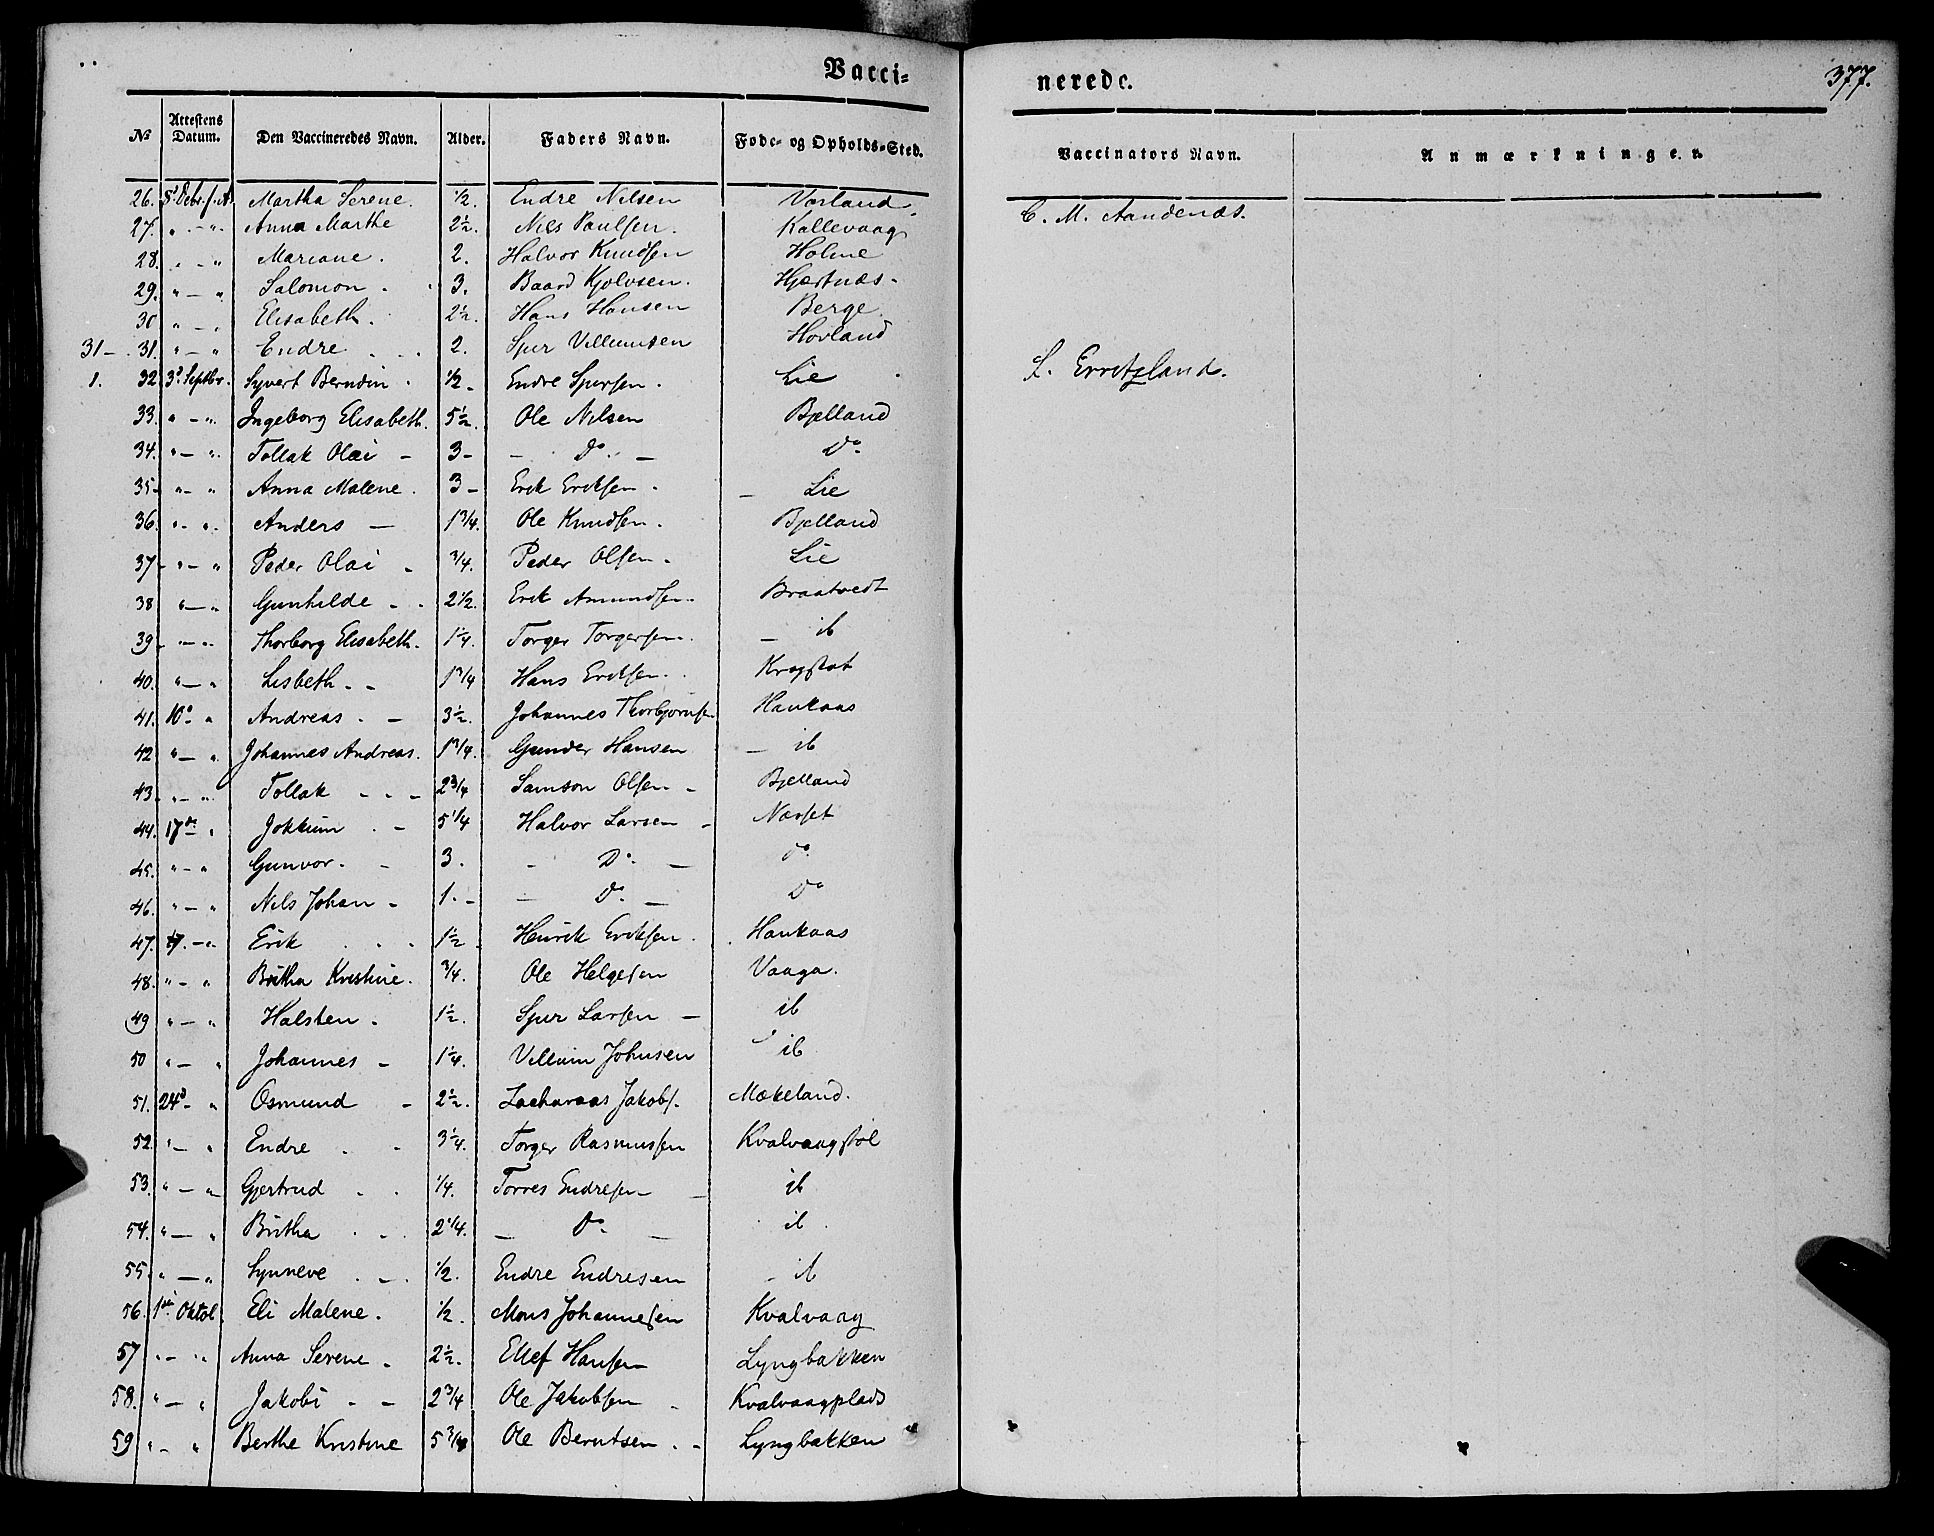 Vacci= nerede. 377.
№ Attestens Datum. Den Vaccineredes Navn. Alder. Faders Navn. Føde- og Opholds-Sted. Vaccinators Navn. Anmærkninger.
26. 5te Debr. f. A. Martha Serene. 1/2. Endre Nilsen Vorland C. M. Aandenæs.
27. " - " Anna Marthe 2 1/2. Niels Paulsen. Kallevaag
28. " - " Mariane. 2. Halvor Knudsen Holme
29. " - " Salomon. 3. Baard Kjolvsen. Hjertnæs.
30 " - " Elisabeth. 2 1/2. Hans Hansen Berge
31 - 31. " - " Endre 2. Sjur Villumsen Hovland
1. 32 3d Septbr. Syvert Berndin. 1/2. Endre Sjursen. Lie L. Erretzland.
33. " - " Ingeborg Elisabeth. 5 1/2. Ole Nilsen Bjelland
34. " - " Tollak Olai - 3 - - Do. - Do.
35 - " - " Anna Malene. 3 - Erik Eriksen. - Lie
36. " - " Anders - 1 3/4. Ole Knudsen. Bjelland
37 - " - " Peder Olai - 3/4. Peder Olsen. Lie
38 " - " Gunhilde - . 2 1/2. Erik Amundsen. Braatvedt
39 - " - " Thorborg Elisabeth. 1 1/4. Torger Torgersen. - ib
40. " - " Lisbeth - - 1 3/4 Hans Eriksen. Kragstat
41. 10o " Andreas. - 3 1/2. Johannes Thorbjørnsen Haukaas
42 " - " Johannes Andreas. 1 3/4. Gunder Hansen - ib
43. " - " Tollak - - - 2 3/4 Samson Olsen - Bjelland
44. 17de " Jokkum . - 5 1/4 Halvor Larsen - Nærset
45. " - " Gunvor. - 3. - Do. - do.
46. " - " Nils Johan - 1. - - Do. - Do
47. 17. - " Erik . . . 1 1/2. Henrik Eriksen. Haukaas
48. " - " Britha Kristine. 3/4. Ole Helgesen Vaaga.
49 " - " Halsten. 1 1/2. Sjur Larsen - ib
50 " - " Johannes - 1 1/4. Villum Johnsen ib
51. 24d - " Osmund - 2 1/2. Zacharias Jakobs. Mækeland.
52. " - " Endre . . 3 1/4. Torger Rasmussen Kvalvaagstøl
53. " - " Gjertrud . . 1/4. Torres Endresen - ib
54. " - " Britha . . . 2 1/4. - Do - ib.
55. " - " Synneve . - . 1/2. Endre Endresen - ib
56. 1ste Oktob. Eli Malene. 1/2. Mons Johannesen Kvalvaag
57 " - " Anna Serene - 2 1/2. Ellef Hansen Lyngbakken
58. " - " Jakobi - - 2 3/4 Ole Jakobsen - Kvalvaagplads
59 " - " Berthe Kristine 5 3/4 Ole Berntsen. - Lyngbakken